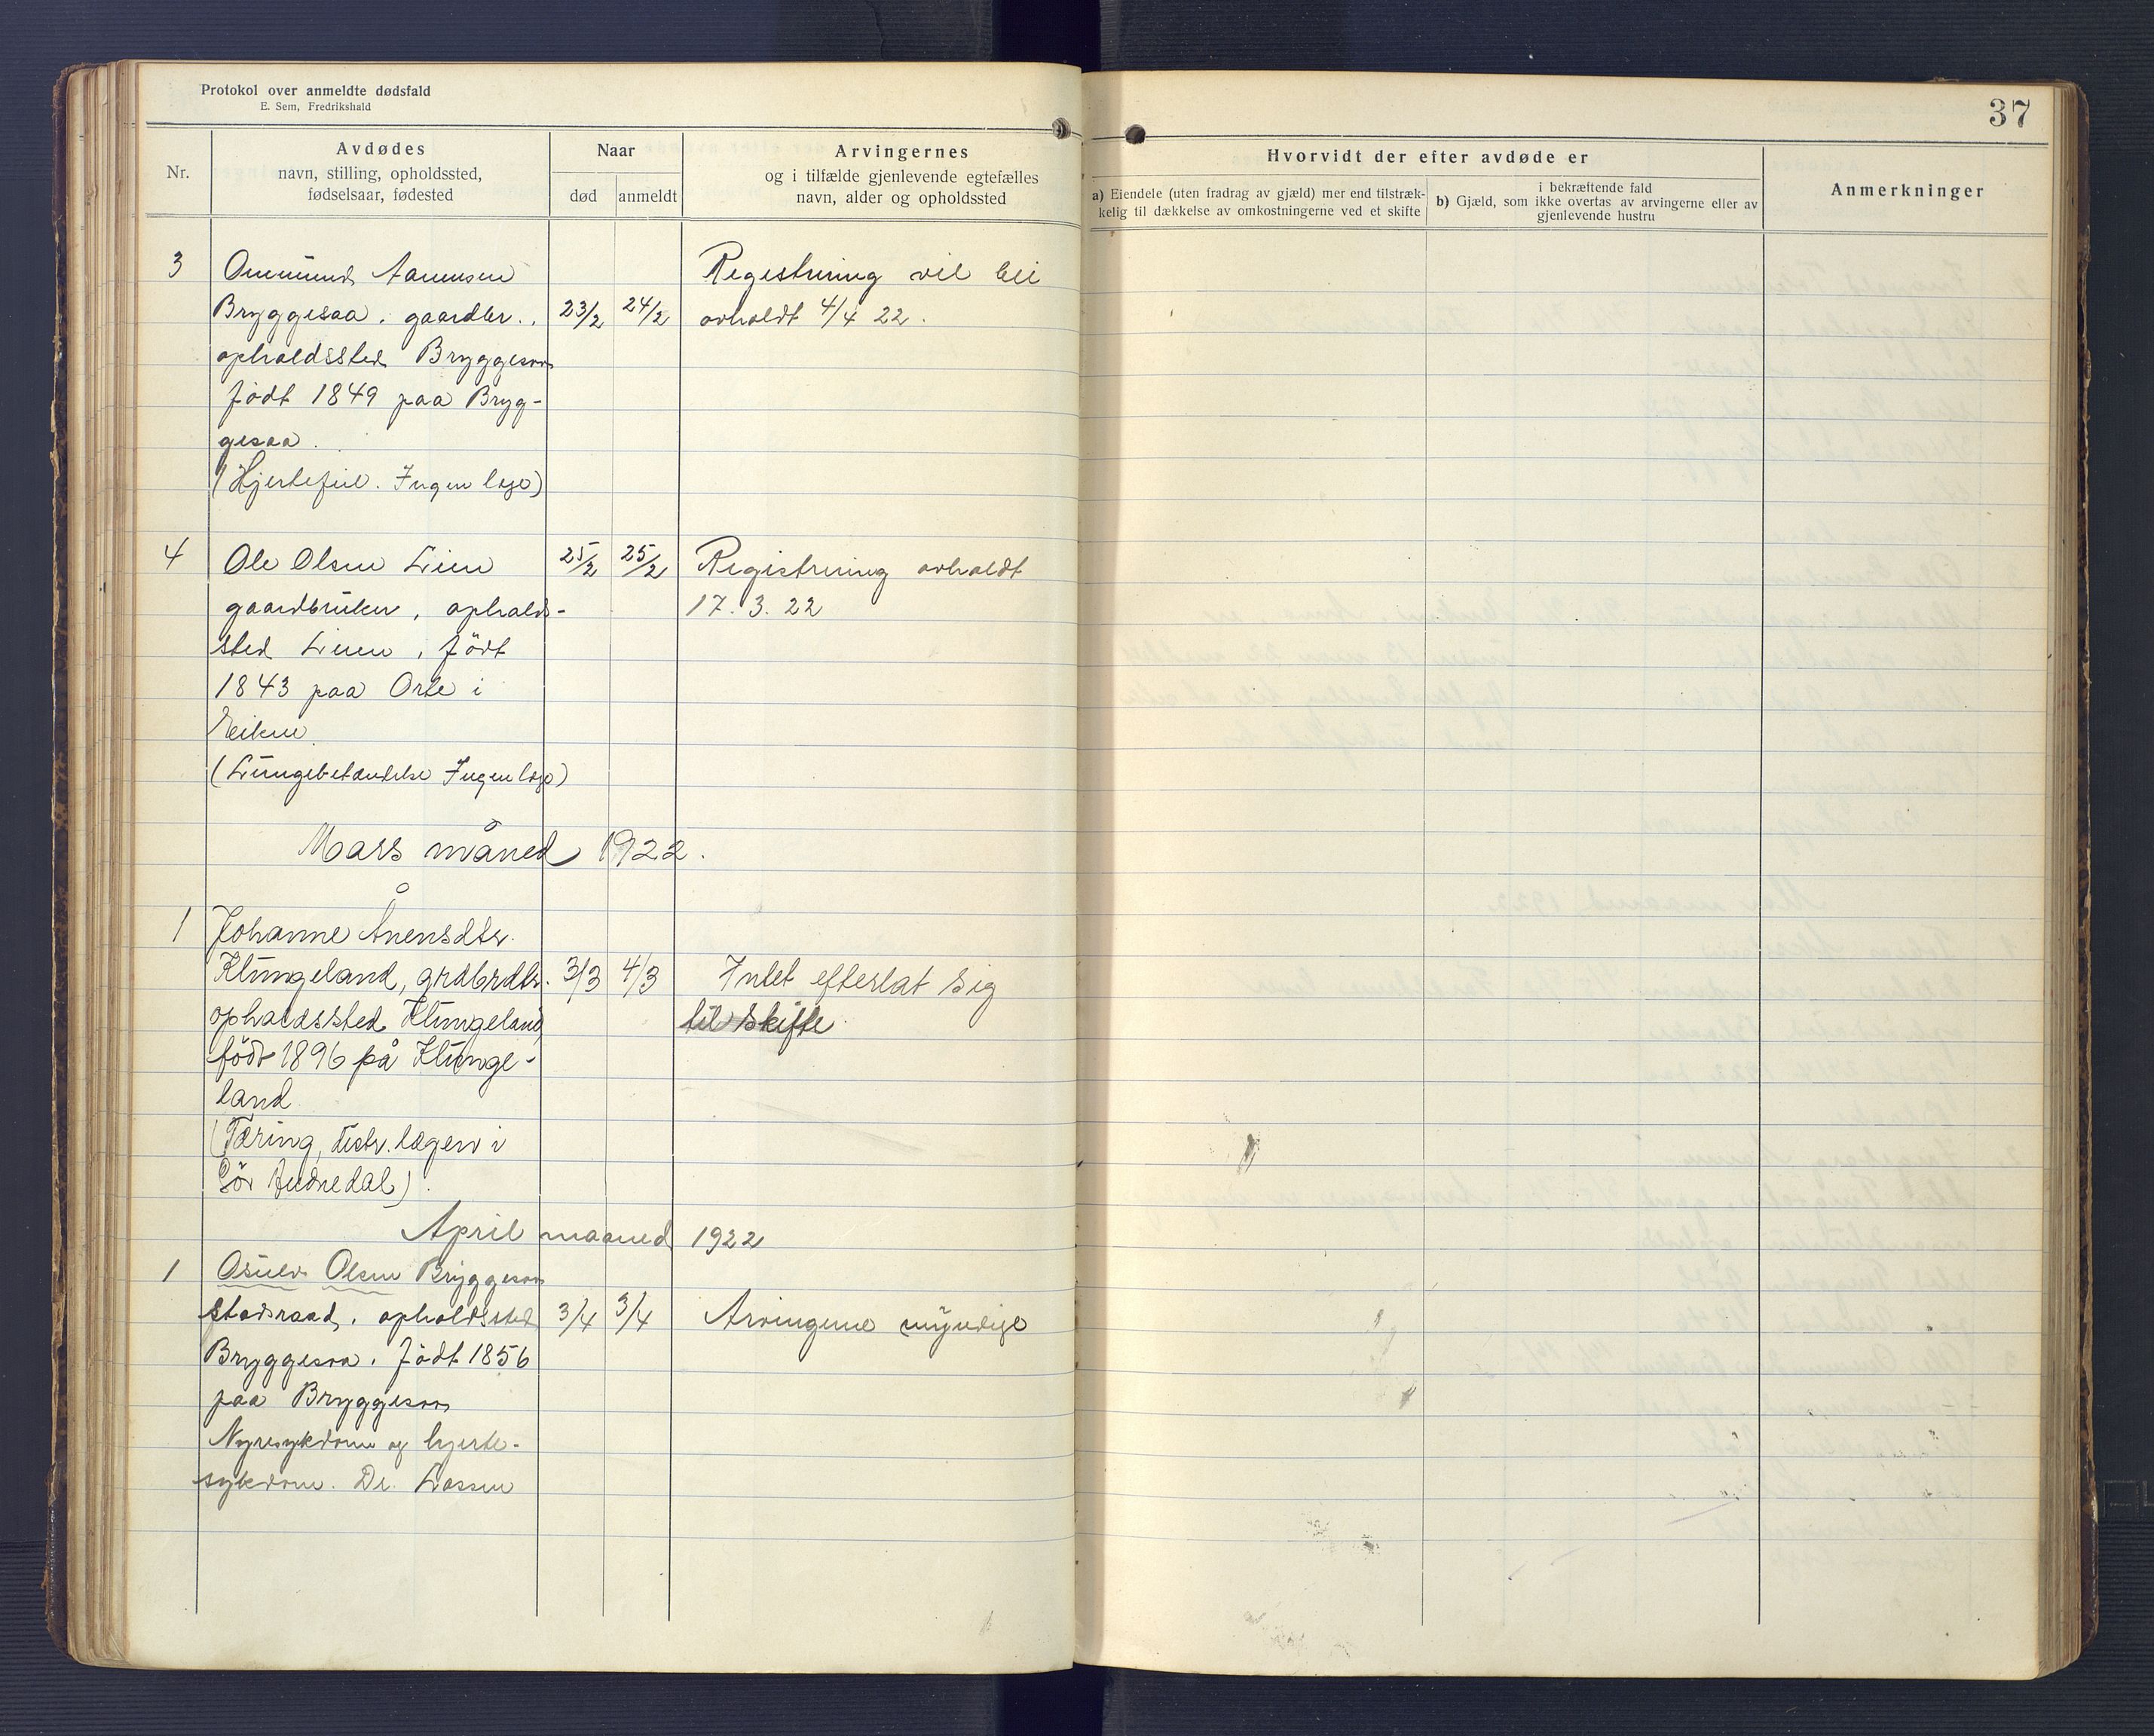 Protokol over anmeldte dødsfald
E. Sem, Fredrikshald
37
Nr.
Avdødes
navn, stilling, opholdssted,
fødselsaar, fødested
Naar
død
anmeldt
Arvingernes
og i tilfælde gjenlevende egtefælles
navn, alder og opholdssted
Hvorvidt der efter avdøde er
a) Eiendele (uten fradrag av gjæld) mer end tilstræk-
kelig til dækkelse av omkostningerne ved et skifte
i bekræftende fald
b) Gjæld, som ikke overtas av arvingerne eller av
gjenlevende hustru
Anmerkninger
3 Ommund Aanensen Registrering vil bli
Bryggesaa, gaardbr., 23/2 24/2 avholdt 4/4 22.
opholdssted Bryggesaa
født 1849 paa Bryg-
gesaa.
(Hjertefeil. Ingen læge)
4 Ole Olsen Lien 25/2 25/2 Registrering avholdt
gaardbruker, opholds- 17. 3. 22
sted Lien, født
1843 paa Orte i
Eiken
(Lungebetændelse Ingen læge)
Mars måned 1922.
1 Johanne Ånensdtr.
Klungeland, grdbrdtr. 3/3 4/3 Intet efterlat sig
opholdssted Klungeland, til skifte.
født 1896 på Klunge-
land
(Tæring, distr. lægen i
Sør Audnedal).
April maaned 1922
1 Osulv Olsen Bryggesaa
stodsraad, opholdssted 3/4 3/4 Arvingerne myndige
Bryggesaa, født 1856
paa Bryggesaa
Nyresykdom og hjerte-
sykdom. Dr. Lassen